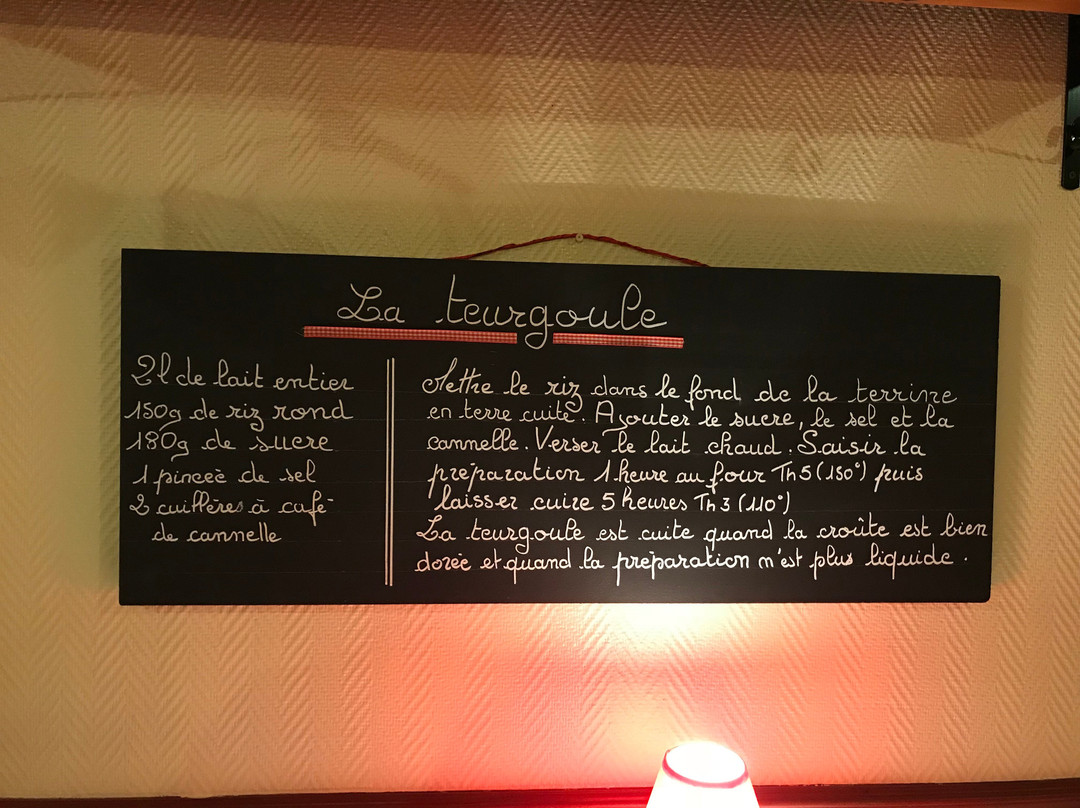 La teurgoule
2l de lait entier
150g de riz rond
180g de sucre
1 pinceè de sel
2 cuillères à café
de cannelle
Mettre le riz dans le fond de la terrine
en terre cuite. Ajouter le sucre, le sel et la
cannelle. Verser le lait chaud. Saisir la
préparation 1 heure au four Th5 (150°) puis
laisser cuire 5 heures Th3 (110°)
La teurgoule est cuite quand la croûte est bien
dorée et quand la préparation n'est plus liquide.